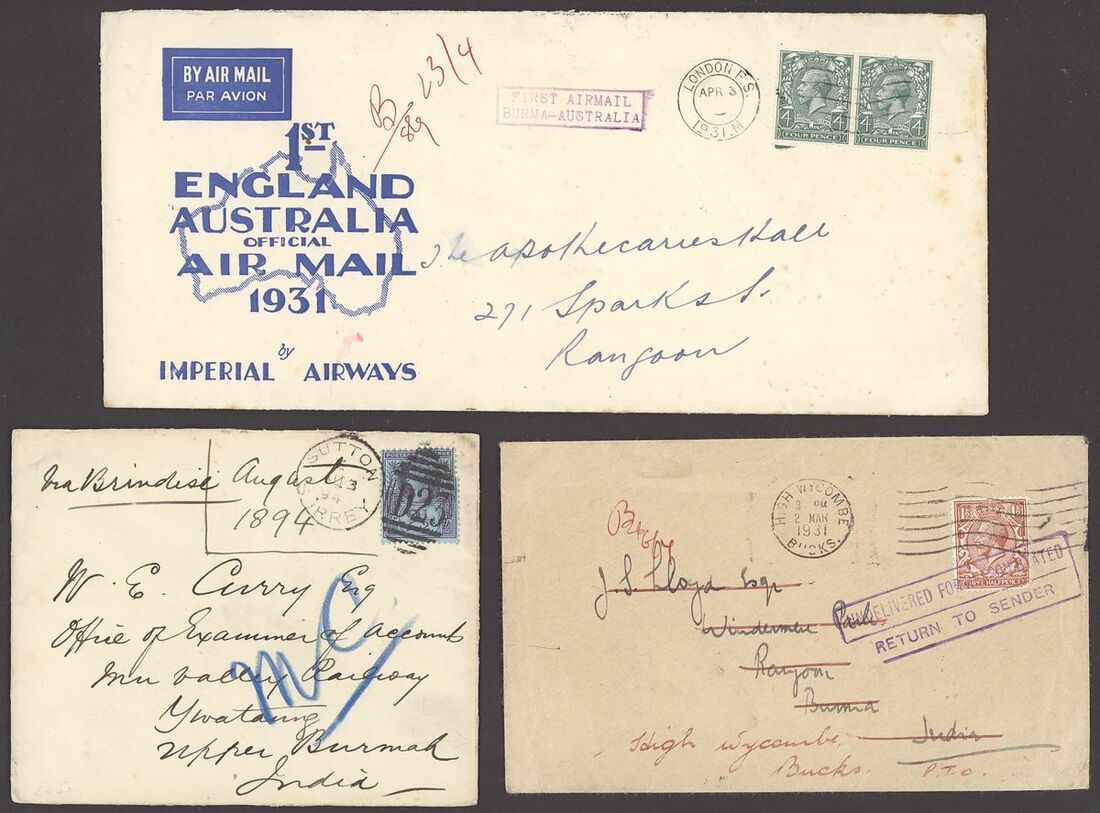 BY AIR MAIL
PAR AVION
1ST
ENGLAND
AUSTRALIA
OFFICIAL
AIR MAIL
1931
by
IMPERIAL AIRWAYS
23/4
FIRST AIRMAIL
BURMA—AUSTRALIA
LONDON F.S.
APR 3
1931
4 4
FOUR PENCE
4 4
FOUR PENCE
The Apothecaries Hall
271 Sparks St.
Rangoon
Via Brindisi August
1894
SUTTON
94
SURREY
D23
W. E. Curry Esq
Office of Examiner of Accounts
Mu Valley Railway
Ywataung
Upper Burmah
India
MC
HIGH WYCOMBE
3 PM
2 MAR
1931
BUCKS.
1½ 1½
UNDELIVERED FOR
RETURN TO SENDER
J. S. Lloyd Esq
Windermere Park
Rangoon
Burma
India
High Wycombe,
Bucks. P.T.O.